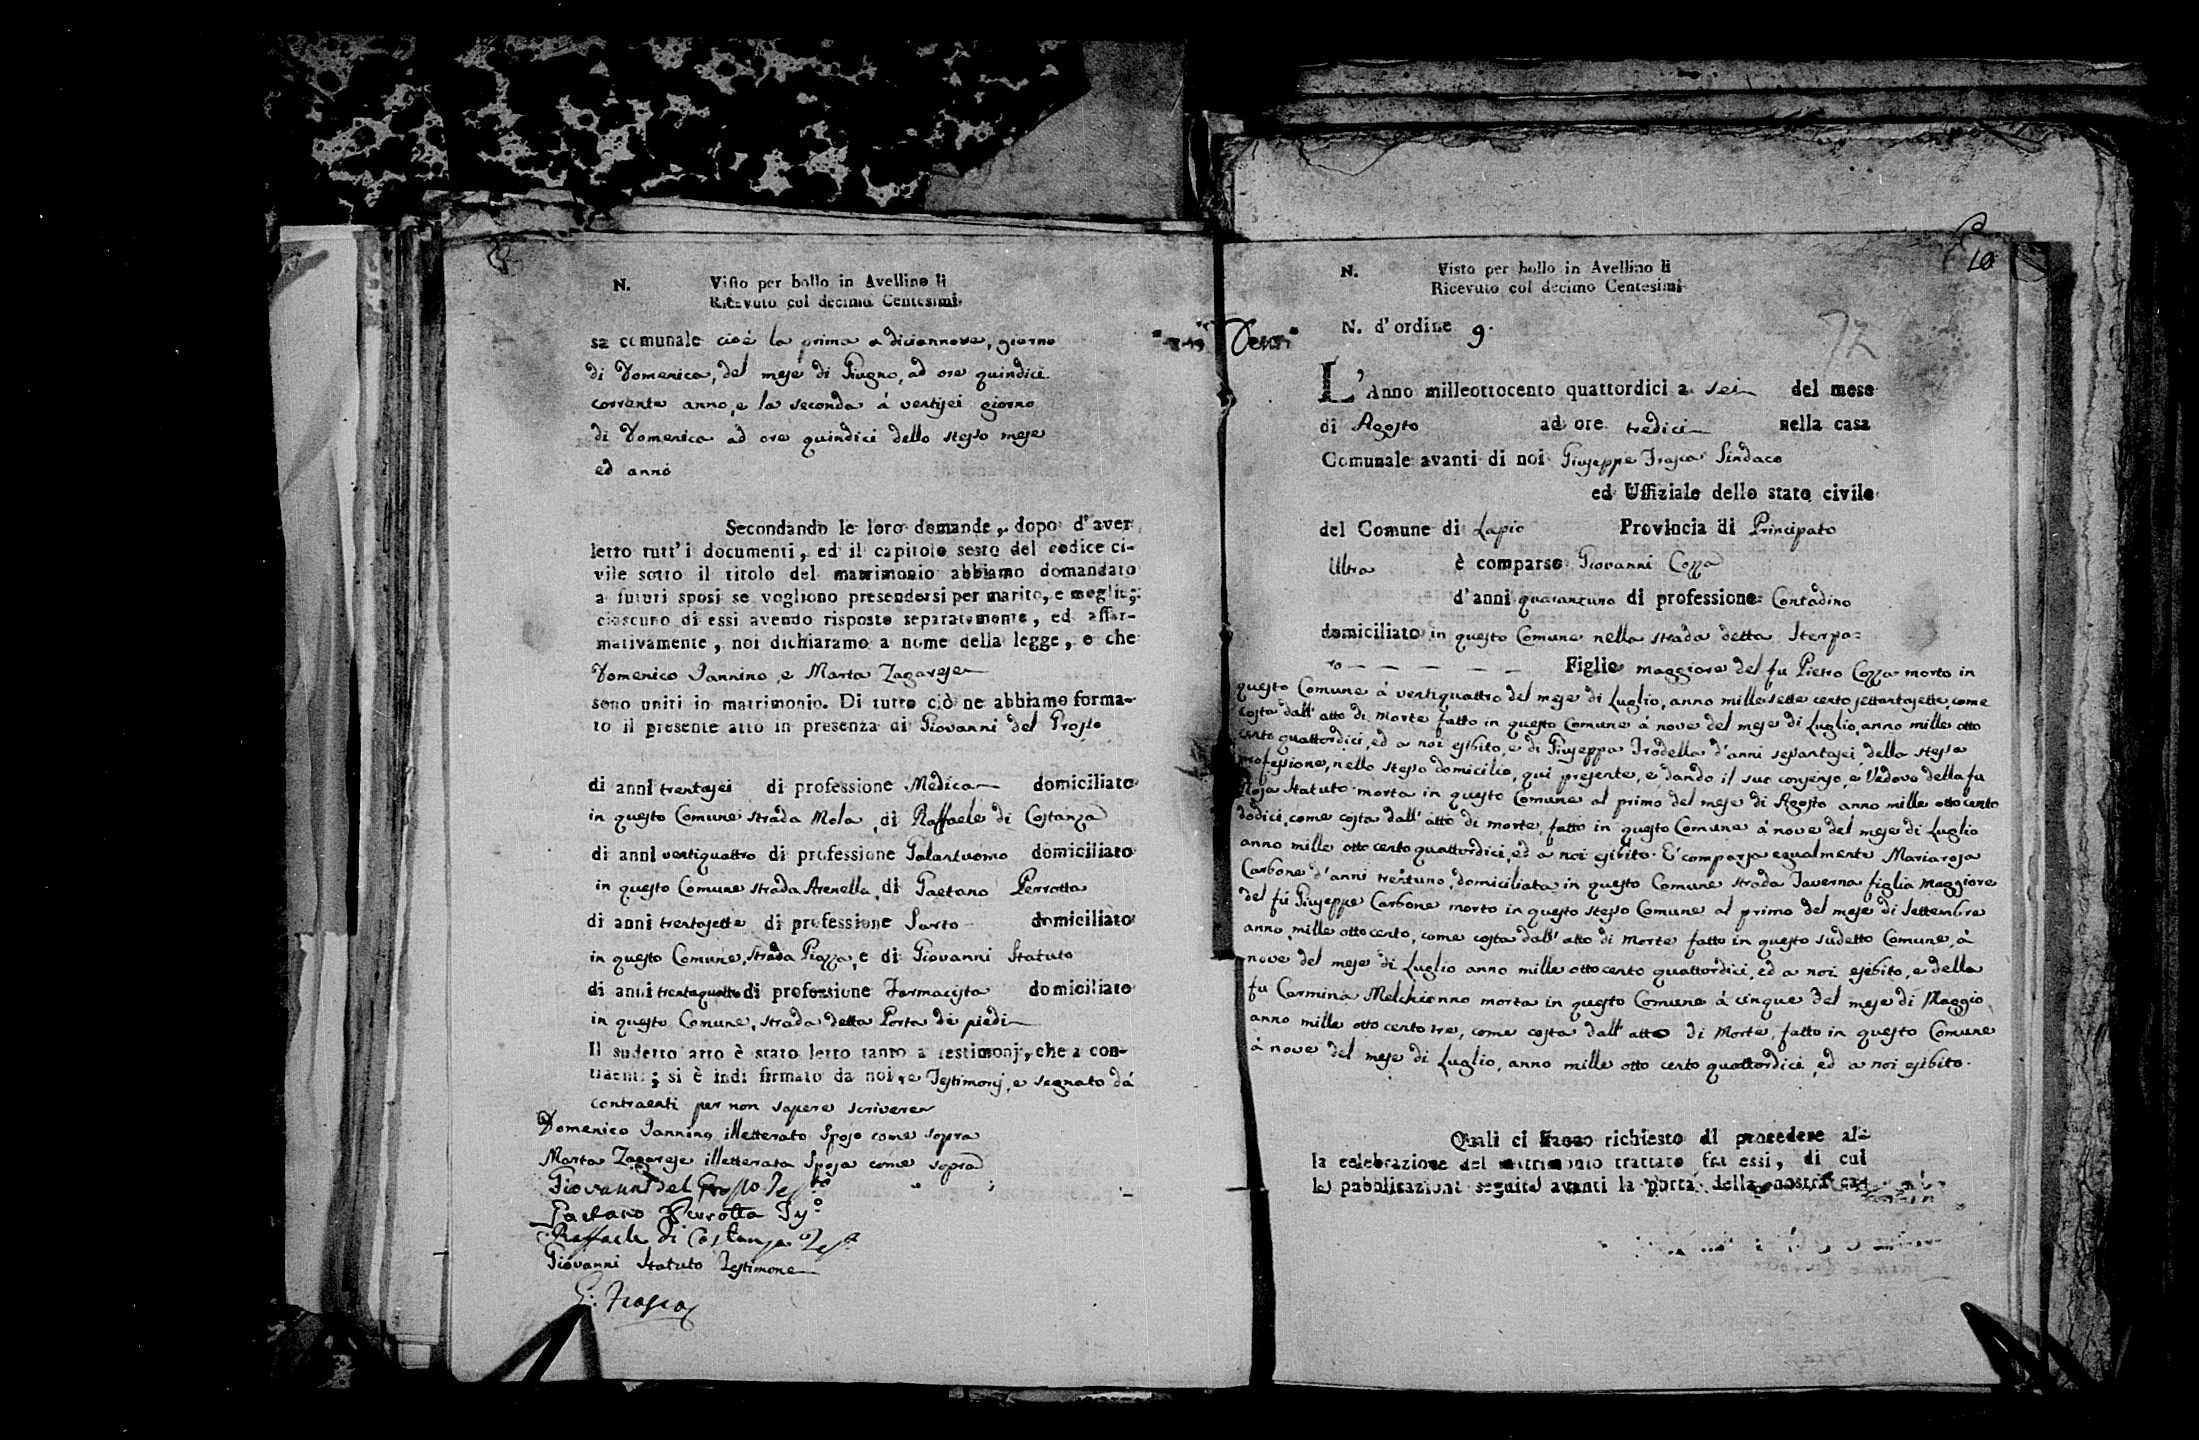 N. Visto per bollo in Avellino li
Ricevuto col decimo Centesimi
sa comunale cioè la prima a diciannove, giorno
di Domenica, del mese di Giugno, ad ore quindici
corrente anno, e la seconda à ventisei giorno
di Domenica ad ore quindici dello stesso mese
ed anno
Secondando le loro domande, dopo d'aver
letto tutt'i documenti, ed il capitolo sesto del codice ci-
vile sotto il titolo del matrimonio abbiamo domandato
a futuri sposi se vogliono prendersi per marito, e moglie;
ciascuno di essi avendo risposto separatamente, ed affir-
mativamente, noi dichiaramo a nome della legge, e che
Domenico Iannino, e Marta Zagarese
sono uniti in matrimonio. Di tutto ciò ne abbiamo forma-
to il presente atto in presenza di Giovanni del Grosso
di anni trentasei di professione Medico domiciliato
in questo Comune strada Mola, di Raffaele di Costanza
di anni ventiquattro di professione Galantuomo domiciliato
in questo Comune strada Arenella, di Gaetano Perrotta
di anni trentasette di professione Sarto domiciliato
in questo Comune, strada Piazza, e di Giovanni Statuto
di anni trentaquattro di professione Farmacista domiciliato
in questo Comune, strada detta Porta de piedi
Il sudetto atto è stato letto tanto a testimonj, che a con-
traenti; si è indi firmato da noi, e Testimonj, e segnato dá
contraenti per non sapere scrivere
Domenico Iannino illetterato Sposo come sopra
Marta Zagarese illetterata Sposa come sopra
Giovanni del Grosso Testo
Gaetano Perrotta Tso
Raffaele di Costanza Teso
Giovanni Statuto Testimone
G: Frasca
10
N. Visto per bollo in Avellino li
Ricevuto col decimo Centesimi
N. d'ordine 9.
72
L'Anno milleottocento quattordici a sei del mese
di Agosto ad ore tredici nella casa
Comunale avanti di noi Giuseppe Frasca Sindaco
ed Uffiziale dello stato civile
del Comune di Lapio Provincia di Principato
Ultra è comparso Giovanni Cozza
d'anni quarantuno di professione Contadino
domiciliato in questo Comune nella strada detta Sterpa=
ro Figlio maggiore del fu Pietro Cozza morto in
questo Comune à ventiquattro del mese di Luglio, anno mille sette cento settantasette, come
costa dall'atto di Morte fatto in questo Comune à nove del mese di Luglio, anno mille otto
cento quattordici, ed a noi esibito, e di Giuseppa Trodella d'anni sessantasei della stessa
professione, nello stesso domicilio, qui presente, e dando il suo consenso, e Vedovo della fu
Rosa Statuto morta in questo Comune al primo del mese di Agosto anno mille otto cento
dodici, come costa dall'atto di morte, fatto in questo Comune à nove del mese di Luglio
anno mille otto cento quattordici, ed a noi esibito. E' comparsa egualmente Mariarosa
Carbone d'anni trentuno, domiciliata in questo Comune strada Taverna figlia Maggiore
del fú Giuseppe Carbone morto in questo stesso Comune al primo del mese di Settembre
anno mille otto cento, come costa dall'atto di Morte fatto in questo sudetto Comune, à
nove del mese di Luglio anno mille otto cento quattordici, ed a noi esibito, e della
fu Carmina Melchionno morta in questo Comune á cinque del mese di Maggio
anno mille otto cento tre, come costa dall'atto di Morte, fatto in questo Comune
à nove del mese di Luglio, anno mille otto cento quattordici, ed a noi esibito.
Quali ci hanno richiesto di procedere al-
la celebrazione del matrimonio trattato fra essi, di cui
le pubblicazioni seguite avanti la porta della nostra ca-